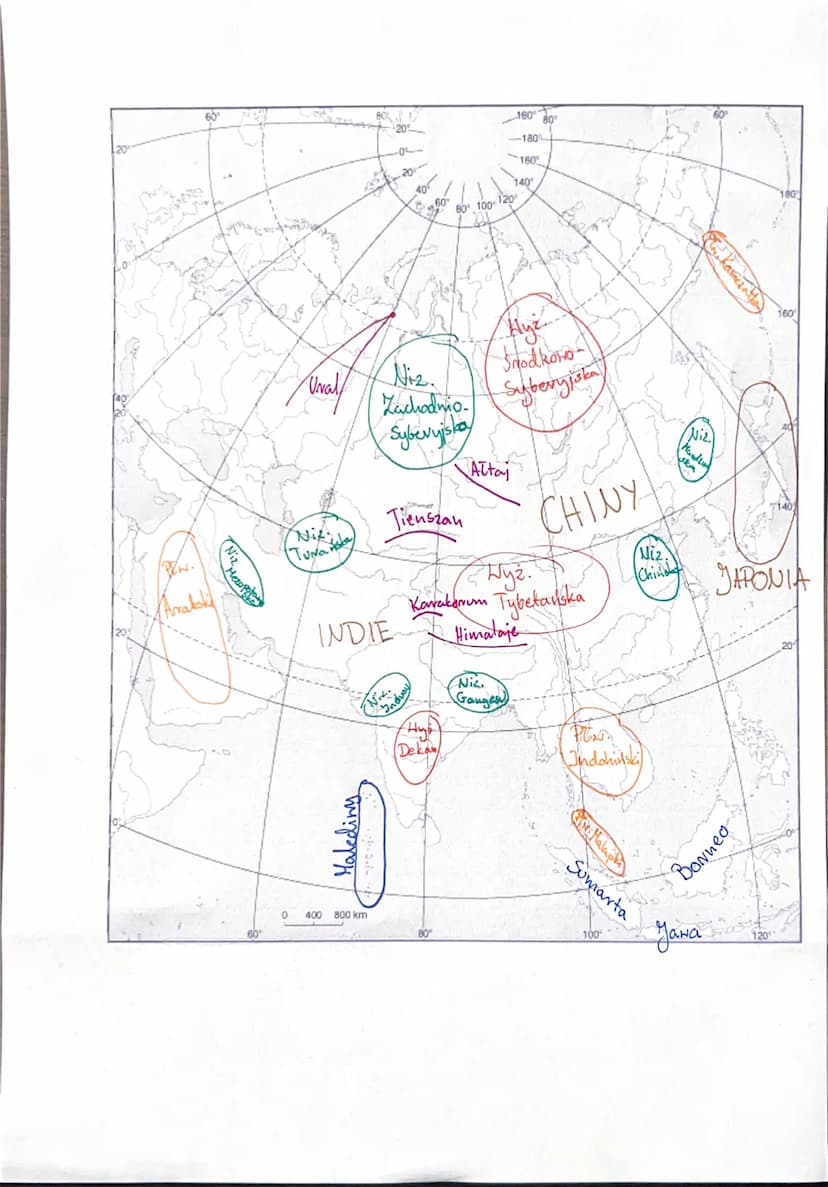 60°
80°
160°
80°
60°
20°
180°
20°
0°
160°
20°
140°
180°
40°
60°
80°
100°
120°
0°
Płw. Kamczatka
160°
Wyż.
Środkowo-
Syberyjska
Ural
Niz.
Zachodnio-
Syberyjska
40°
20°
40°
Niz.
Ałtaj
CHINY
140°
Tienszan
Niz.
Turańska
Niz.
Chińska
Płw.
Arabski
Niz. Mezopotamska
Wyż.
Tybetańska
JAPONIA
Karakorum
INDIE
Himalaje
20°
20°
Niz.
Indusu
Niz.
Gangesu
Wyż.
Dekan
Płw.
Indochiński
Malediwy
Płw. Malajski
0°
0°
Borneo
Sumarta
0 400 800 km
Jawa
60°
80°
100°
120°